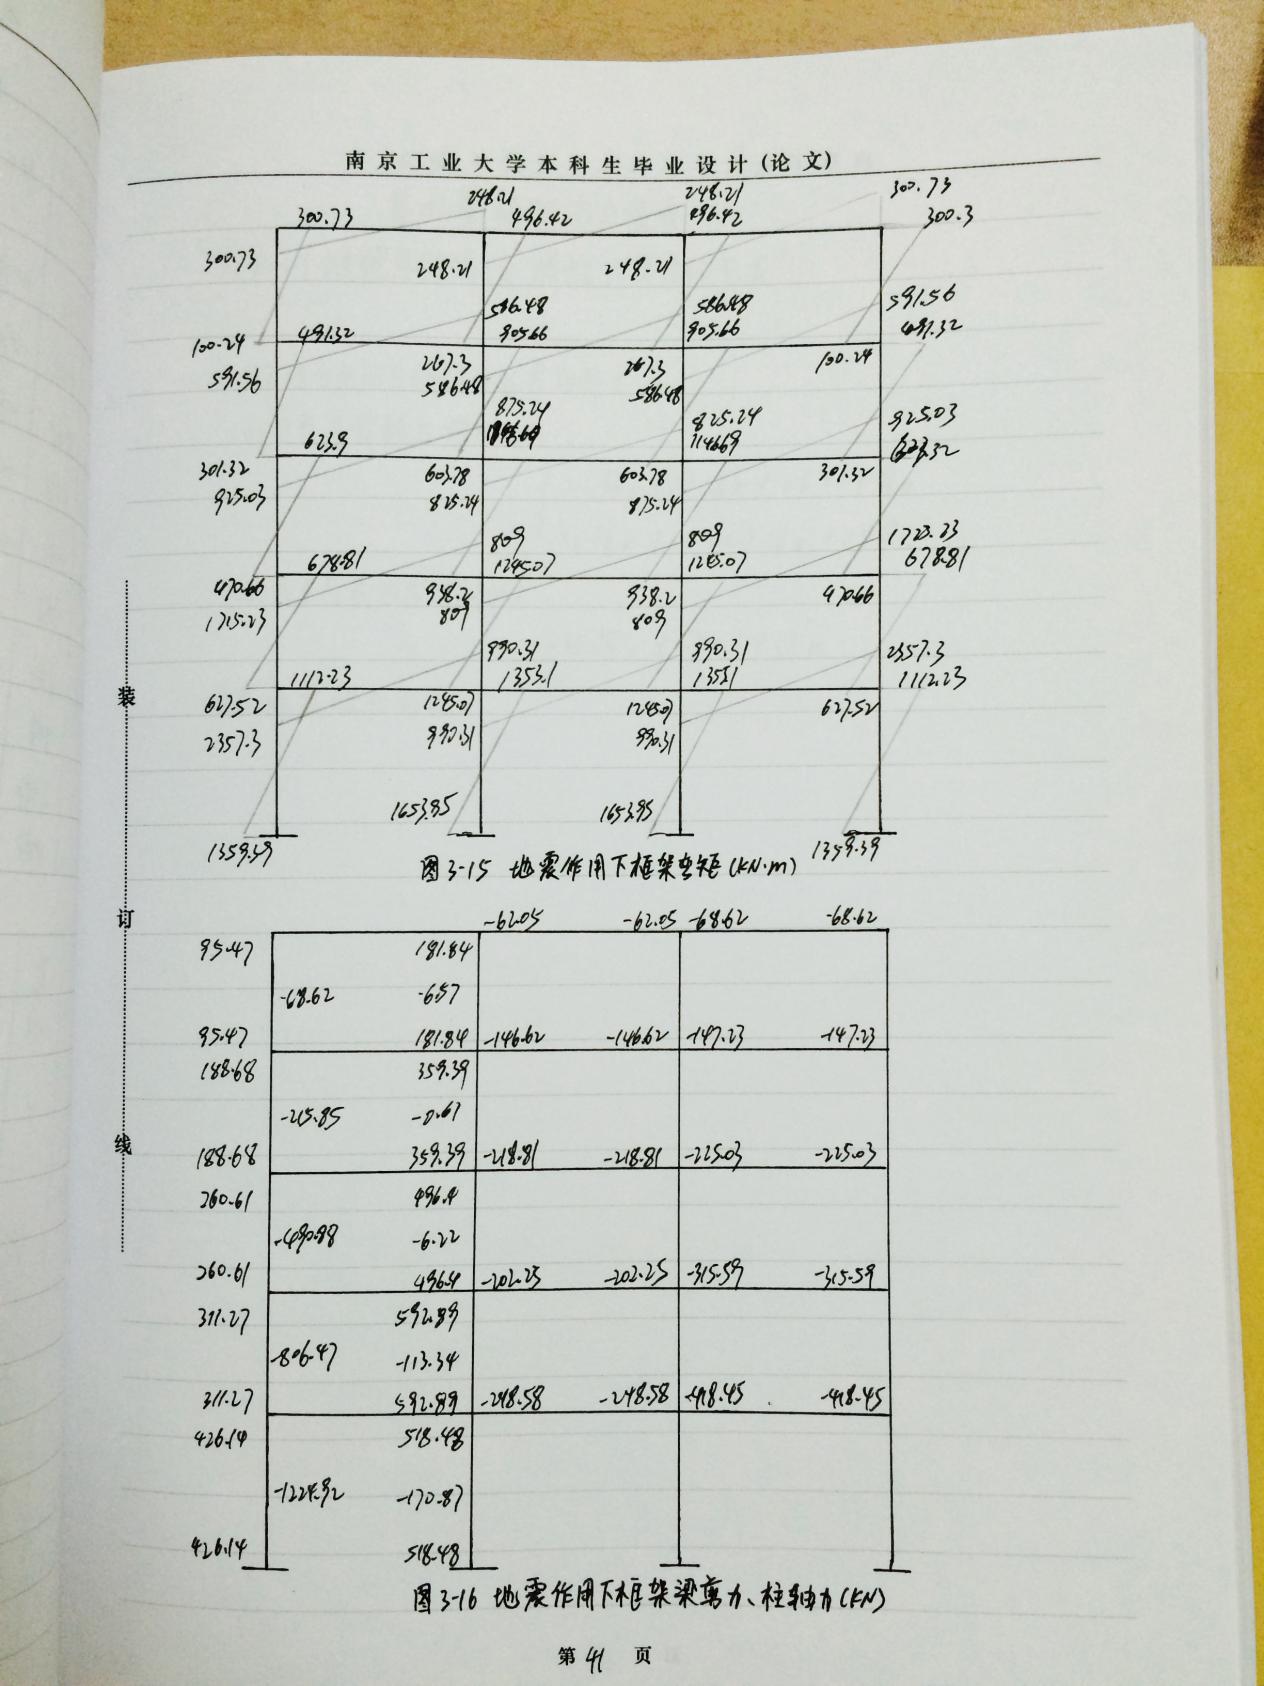 南京工业大学本科生毕业设计(论文)
248.21 248.21 300.73
300.73 496.42 496.42 300.3
300.73 248.21 248.21
586.48 586.48 591.56
100.24 491.32 905.66 905.66 491.32
591.56 267.3 267.3 100.24
586.48 586.48
875.24 825.24 925.03
623.9 1146.69
301.32 603.78 603.78 301.32
925.03 825.24 875.24
809 809 1723.23
678.81 1245.07 1245.07 678.81
470.66 938.2 938.2 470.66
1715.23 809 809
990.31 990.31 2357.3
1112.23 1353.1 1353.1 1112.23
627.52 1245.07 1245.07 627.52
2357.3 990.31 990.31
1653.95 1653.95
1359.39 1359.39
图3-15 地震作用下框架弯矩(KN·m)
-62.05 -62.05 -68.62 -68.62
95.47 181.84
-68.62 -6.57
95.47 181.84 -146.62 -146.62 -147.23 -147.23
188.68 359.39
-215.85 -0.61
188.68 359.39 -218.81 -218.81 -225.03 -225.03
260.61 496.4
-490.88 -6.22
260.61 496.4 -202.25 -202.25 -315.59 -315.59
311.27 592.89
-806.47 -113.34
311.27 592.89 -248.58 -248.58 -418.45 -418.45
426.14 518.48
-1224.92 -170.87
426.14 518.48
图3-16 地震作用下框架梁剪力、柱轴力(KN)
第41页
装订线